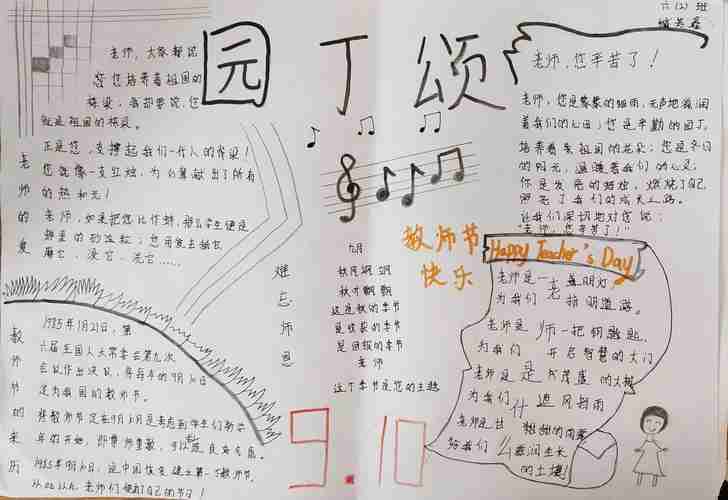 六(2)班
园丁颂
老师，大家都说
您培养着祖国的
栋梁；我却要说，您
就是祖国的栋梁。
正是您，支撑起我们一代人的脊梁！
您就像一支红烛，为
了所有
的热和光！
老师，如果把您比作蚌，那么学生便是
蚌里的砂粒；您用爱去
磨它、浸它、洗它……
老师的爱
老师，您辛苦了！
老师，您是
细雨，无声地滋润
着我们的心田；您是辛勤的园丁，
培养着
祖国的花朵；您是冬日
的阳光，温暖着我们的心灵；
你是
的蜡烛，燃烧了自己
照亮了我们的成才之路。
让我们深切地对您说：
"老师，您辛苦了！"
教师节
快乐
难忘师恩
九月
这是秋的季节
是收获的季节
是团圆的季节
老师
这个季节是您的主题
Happy Teacher's Day
老师是一盏明灯，
为我们指明道路。
老师是一把钥匙，
为我们开启智慧的大门
老师是
茂盛的大树
为我们遮风挡雨
老师是
甜甜的雨露
给我们
滋润生长
的土壤！
老师是什么
教师节的来历
1985年1月21日，第
六届全国人大常委会第九次
会议作出决议，将每年的9月10日
定为我国的教师节。
将教师节定在9月10日是考虑到学生们新学
年的开始，即尊师重教，可以
良好气氛
1985年9月10日，是中国恢复建立第一个教师节，
老师们便有了自己的节日！
9.10